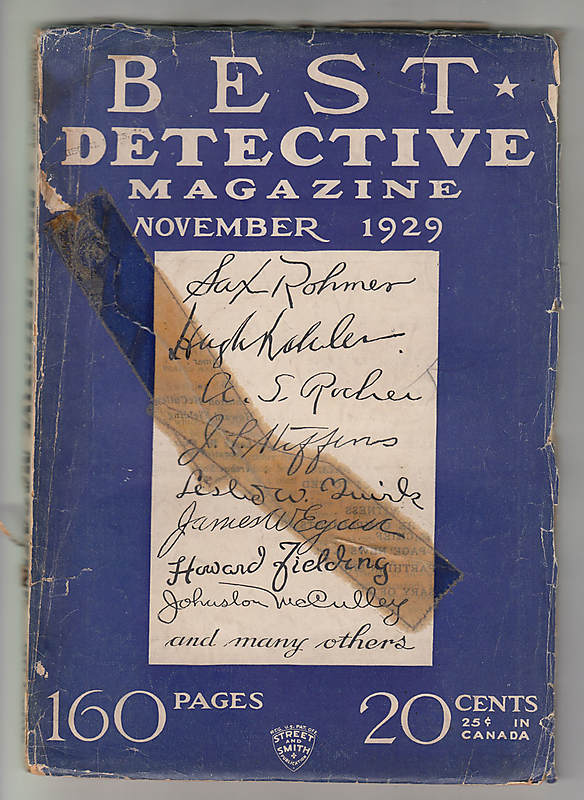 BEST
DETECTIVE
MAGAZINE
NOVEMBER 1929
Sax Rohmer
Hugh Kahler.
A. S. Rocher
J. L.
Leslie W. Quirk
James W Egan
Howard Fielding
Johnston McCulley
and many others
160 PAGES
20 CENTS
25¢ IN
CANADA
REG. U.S. PAT. OFF.
STREET
AND
SMITH
PUBLICATION